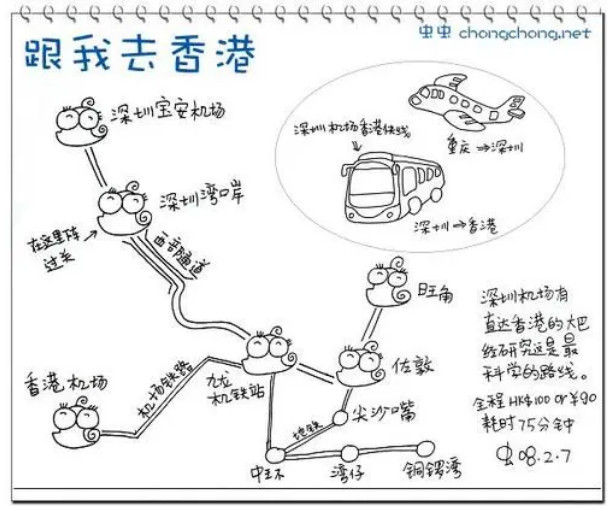 虫虫 chongchong.net
跟我去香港
深圳宝安机场
深圳机场香港快线
重庆⇒深圳
深圳⇒香港
深圳湾口岸
在这里
过关
西部通道
旺角
深圳机场有
直达香港的大巴
经研究这是最
科学的路线。
全程HK$100 or ¥90
耗时75分钟
虫08.2.7
佐敦
香港机场
机场铁路
九龙
机铁站
尖沙嘴
地铁
中环
湾仔
铜锣湾